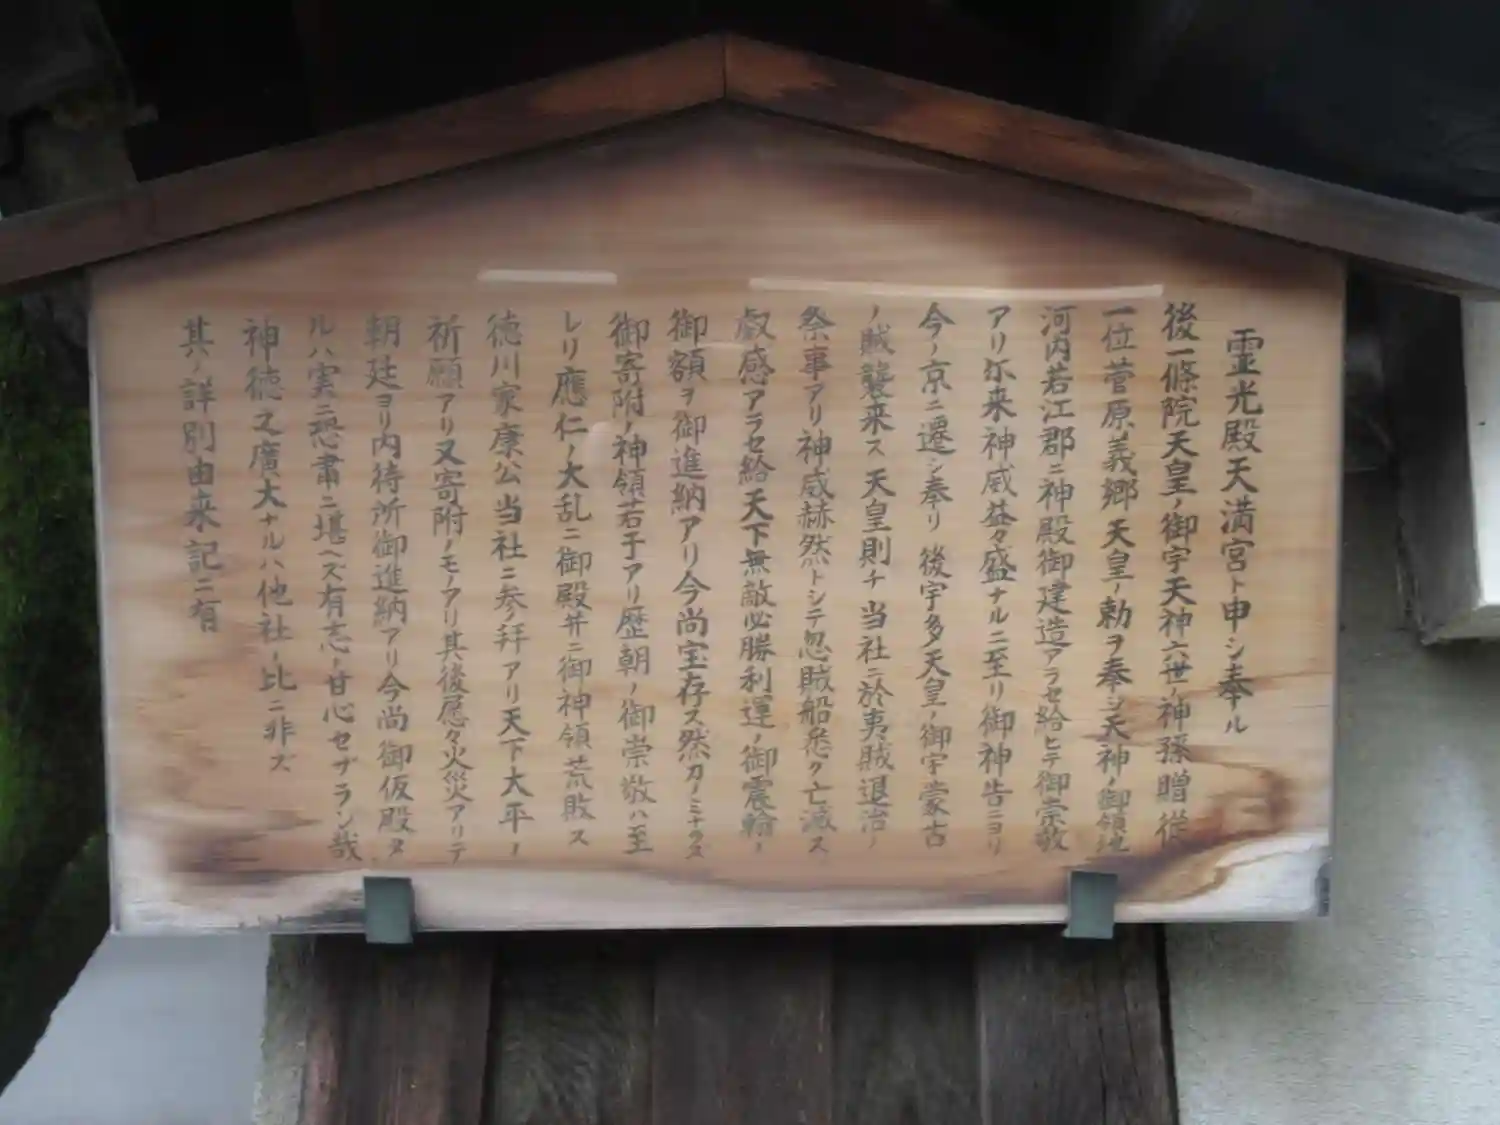 霊光殿天満宮ト申シ奉ル
後一條院天皇ノ御宇天神六世ノ神孫贈従
一位菅原義郷天皇ノ勅ヲ奉ジ天神ノ御領地
河内若江郡ニ神殿御建造アラセ給ヒテ御崇敬
アリ尓来神威益々盛ナルニ至リ御神告ニヨリ
今ノ京ニ遷シ奉リ 後宇多天皇ノ御宇蒙古
ノ賊襲来ス 天皇則チ 当社ニ於夷賊退治ノ
祭事アリ神威赫然トシテ忽賊船悉ク亡滅ス
叡感アラセ給天下無敵必勝利運ノ御震翰ノ
御額ヲ御進納アリ今尚宝存ス然カノミナラズ
御寄附ノ神領若干アリ歴朝ノ御崇敬ハ至
レリ應仁ノ大乱ニ御殿并ニ御神領荒敗ス
徳川家康公当社ニ参ノ拝アリ天下大平ノ
祈願アリ又寄附ノモノアリ其後屡々火災アリテ
朝廷ヨリ内待所御進納アリ今尚御仮殿タ
ルハ実ニ恐粛ニ堪ヘズ有志ノ甘心セザラン哉
神徳之廣大ナルハ他社ノ比ニ非ズ
其ノ詳別由来記ニ有